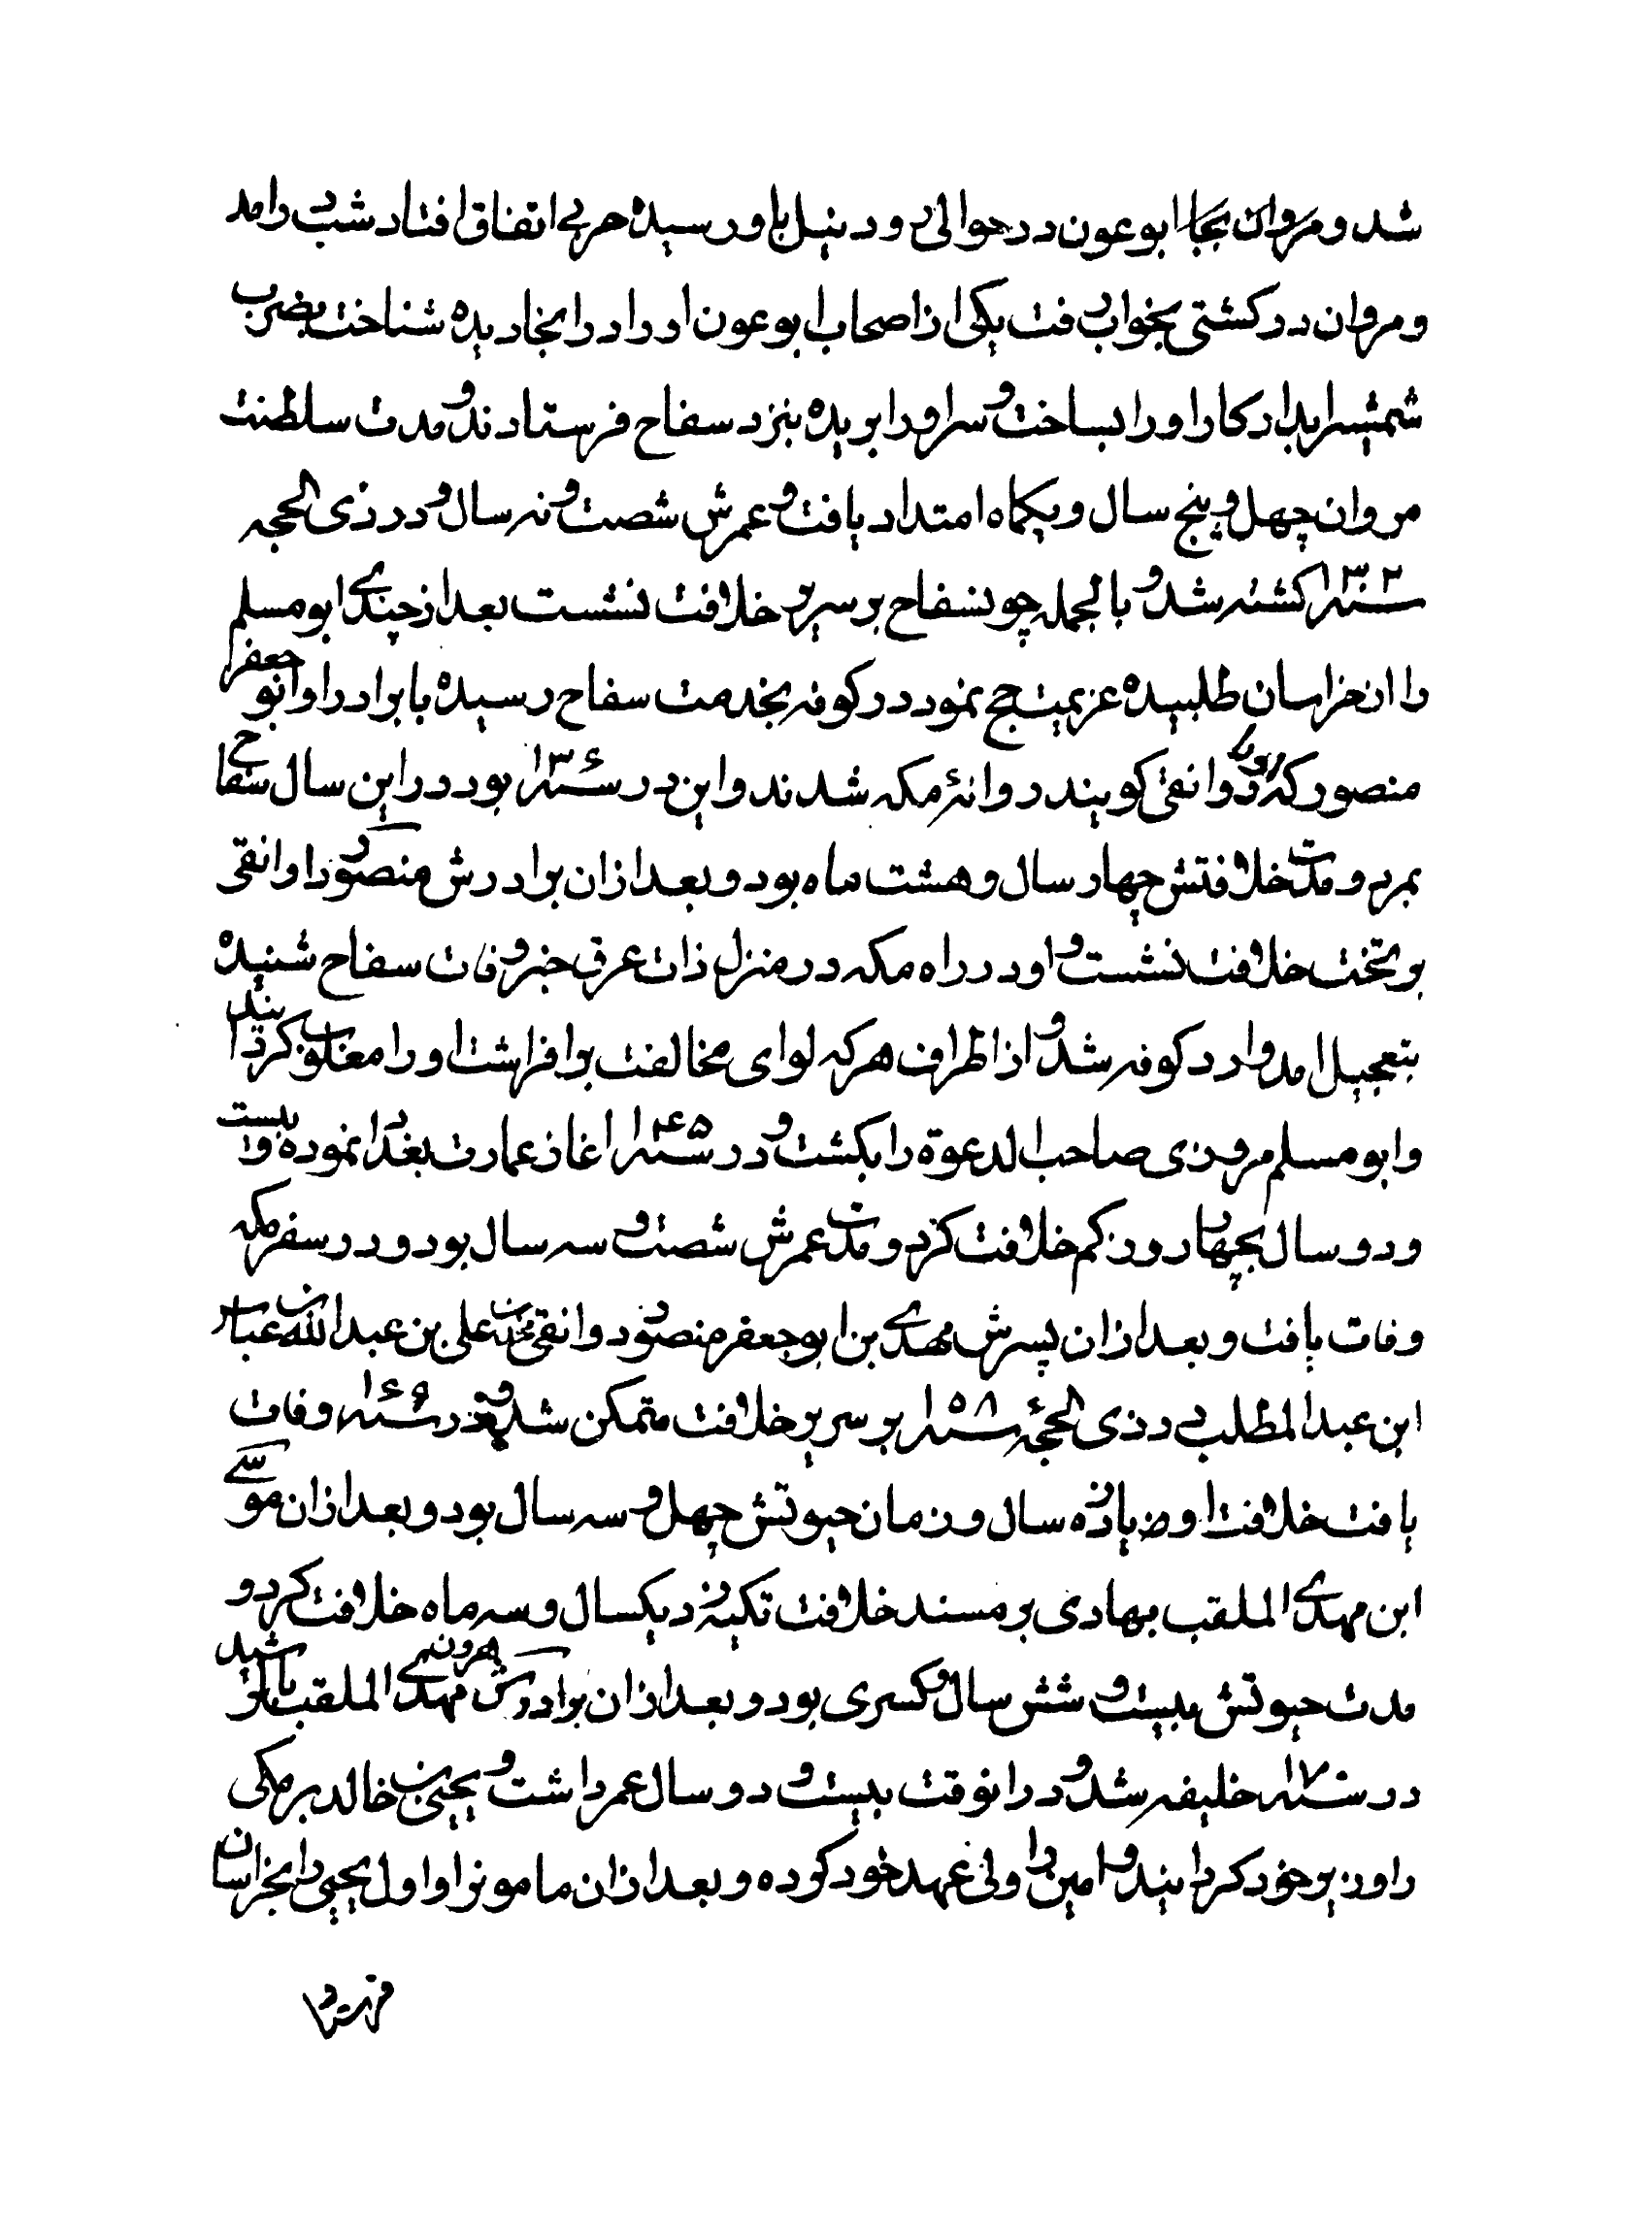 شد و مروان بجا ابوعون در حوالی رود نیل باو رسیده حربی اتفاق افتاد شب درامد
و مروان در کشتی بخواب رفت یکی از اصحاب ابوعون اورا در انجا دیده شناخت بضرب
شمشیر ابدار کار اورا بساخت و سر اورا بریده بنزد سفاح فرستادند و مدت سلطنت
مروان چهل و پنج سال و یکماه امتداد یافت و عمرش شصت و نه سال و در ذی الحجه
سنه ۱۳۲ کشته شد و بالجمله چون سفاح بر سریر خلافت نشست بعد از چندی ابو مسلم
را از خراسان طلبیده عزیمت حج نمود در کوفه بخدمت سفاح رسیده با برادر او ابو جعفر
منصور که دوانقی کویند روانهٔ مکه شدند و این در سنه ۱۳۶ بود در این سال سفاح
بمرد و مدت خلافتش چهار سال و هشت ماه بود و بعد از ان برادرش منصور دوانقی
بر تخت خلافت نشست و او در راه مکه در منزل ذات عرق خبر وفات سفاح شنیده
بتعجیل امد وارد کوفه شد و از اطراف هر که لوای مخالفت بر افراشت اورا مغلوب کردانید
و ابو مسلم مروزی صاحب الدعوة را بکشت و در سنه ۱۴۵ اغاز عمارت بغداد نموده و بیست
و دو سال بچهار روز کم خلافت کرد و مدت عمرش شصت و سه سال بود و در سفر مکه
وفات یافت و بعد از ان پسرش مهدی بن ابو جعفر منصور دوانقی بن محمد بن علی بن عبدالله بن عباس
ابن عبدالمطلب در ذی الحجهٔ سنه ۱۵۸ بر سریر خلافت متمکن شد و در سنه ۱۶۹ وفات
یافت خلافت او یازده سال و زمان حیوتش چهل و سه سال بود و بعد از ان موسی
ابن مهدی الملقب بهادی بر مسند خلافت تکیه زد یکسال و سه ماه خلافت کرد و
مدت حیوتش بیست و شش سال و کسری بود و بعد از ان برادرش هرون بن مهدی الملقب بالرشید
در سنه ۱۷۰ خلیفه شد و در انوقت بیست و دو سال عمر داشت و یحیی بن خالد برمکی
را وزیر خود کردانید و امین را ولی عهد خود کرده و بعد از ان مامونرا و اول یحیی را بخراسان